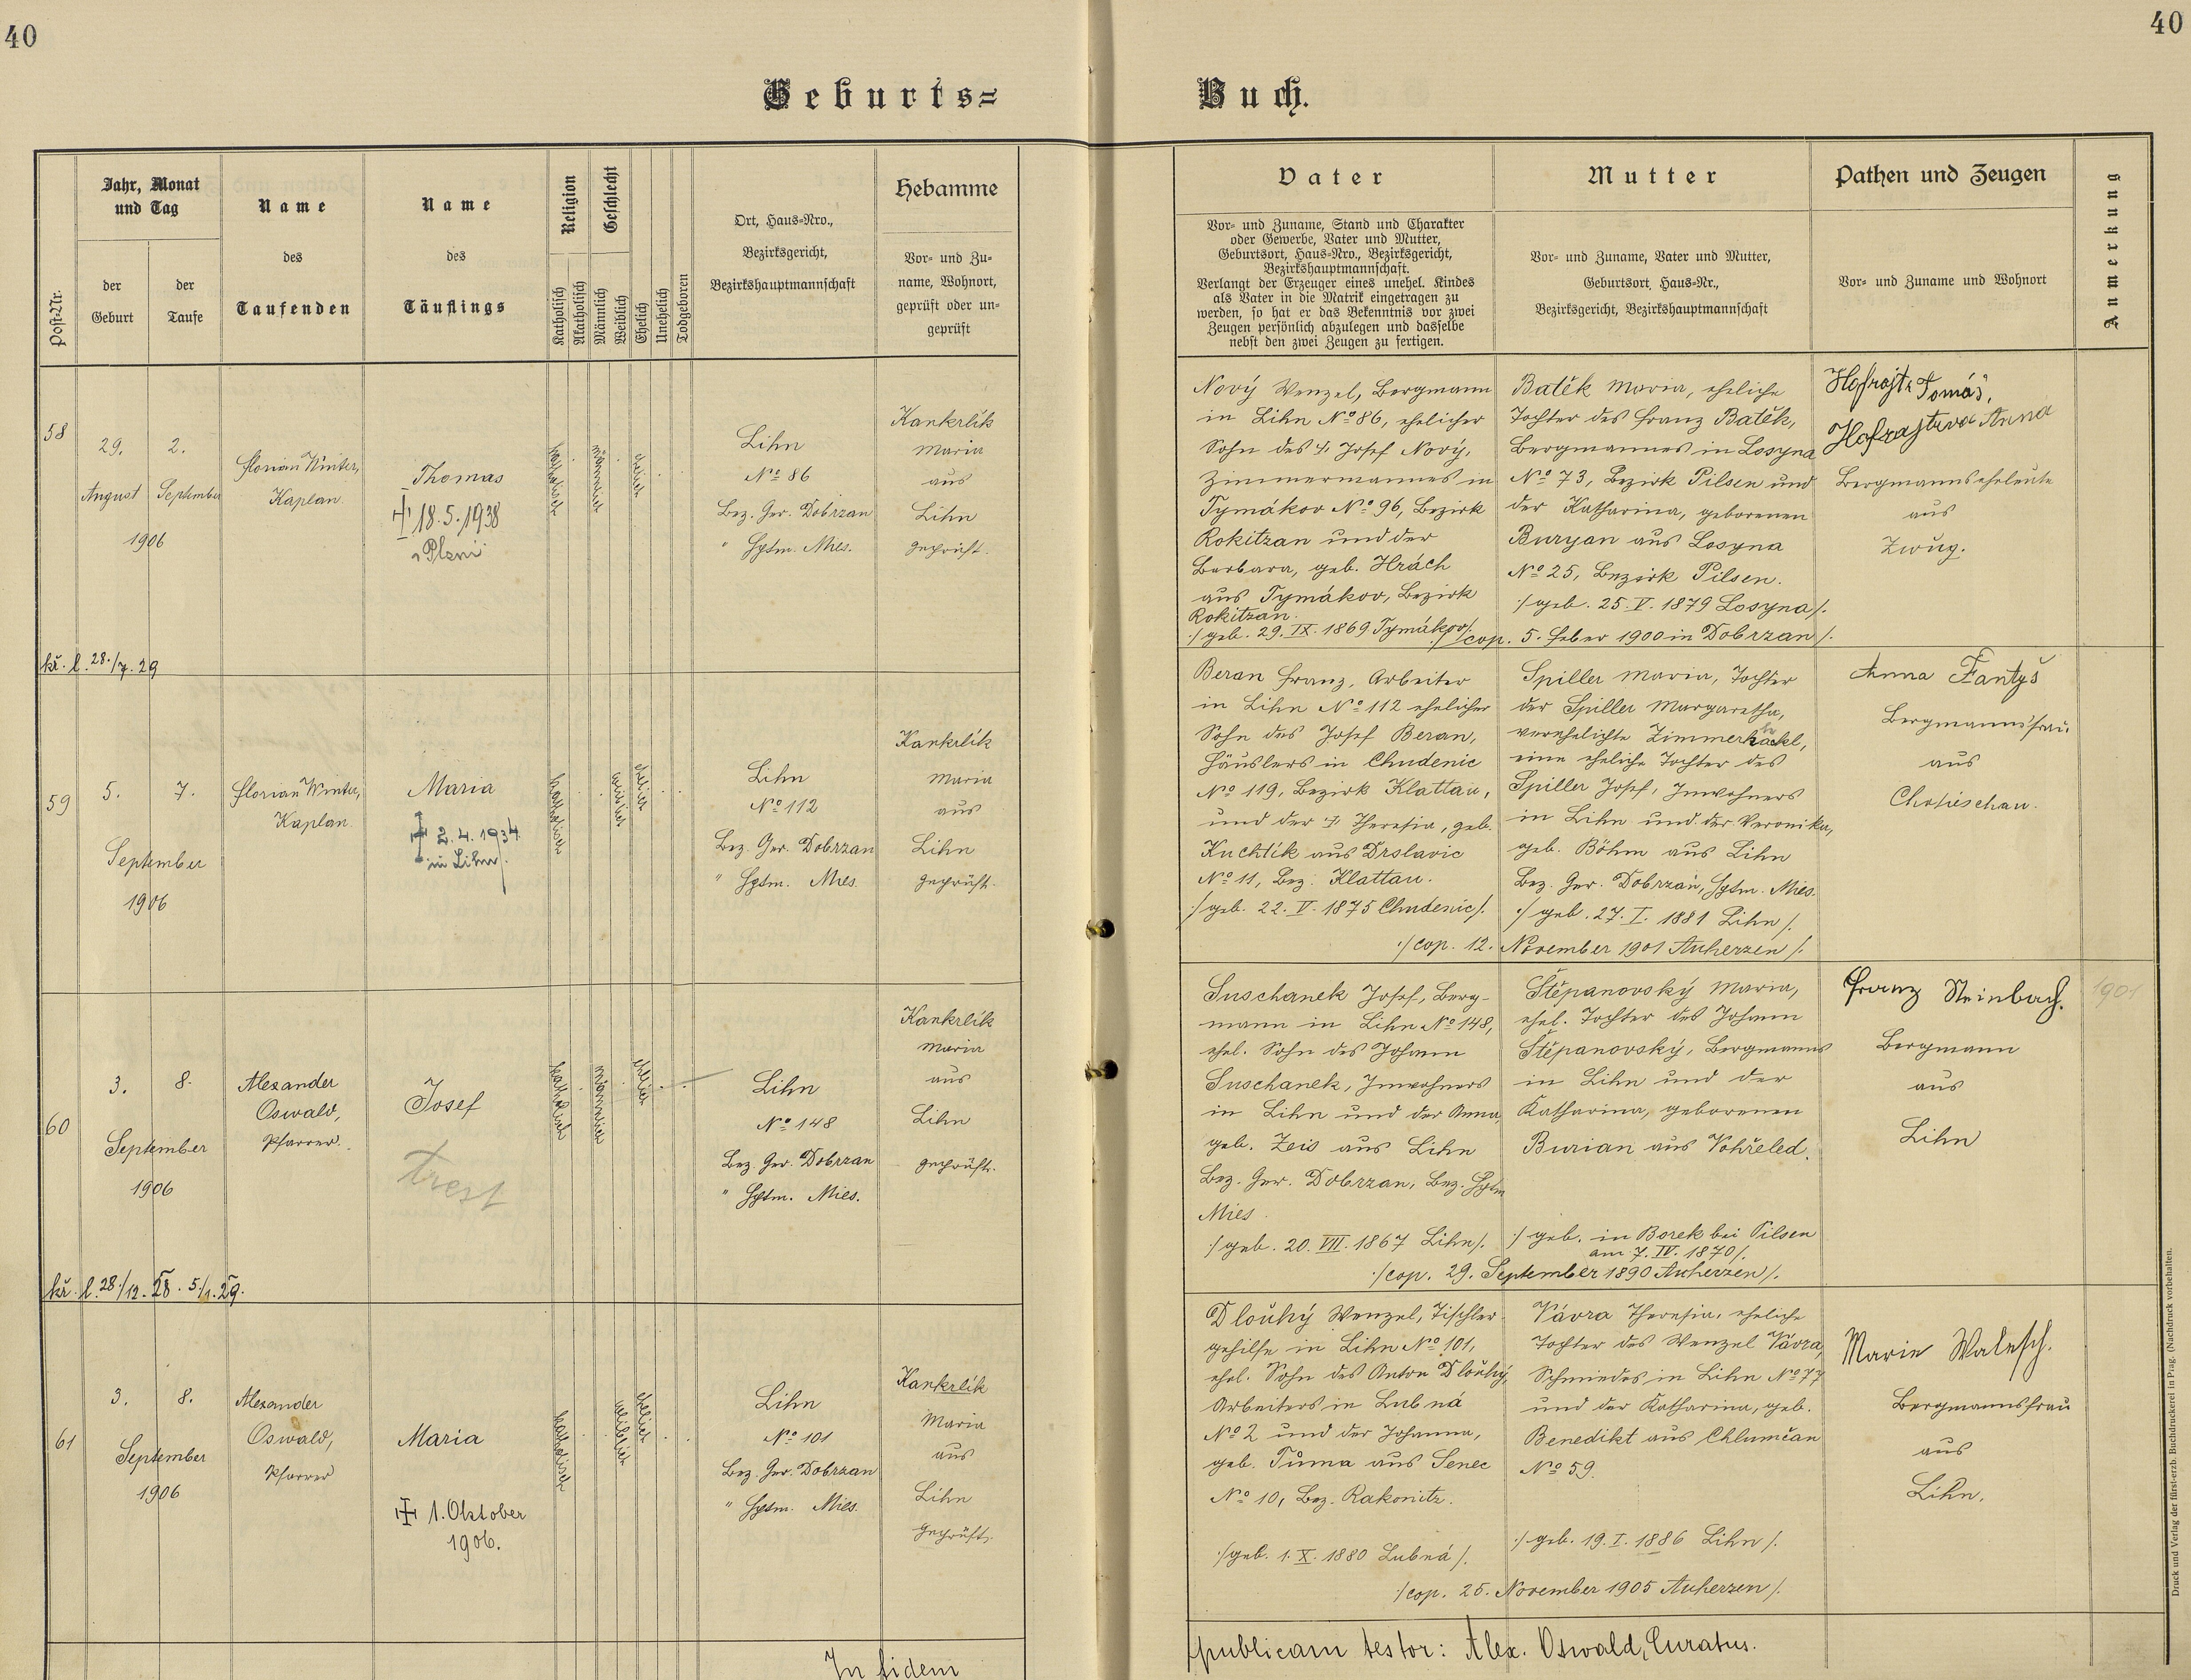 40
40
Geburts=
Buch.
Jahr, Monat
und Tag
Name
Name
Religion
Geschlecht
Hebamme
Post-Nr.
der
Geburt
der
Taufe
des
Taufenden
des
Täuflings
Katholisch
Akatholisch
Männlich
Weiblich
Ehelich
Unehelich
Todgeboren
Ort, Haus=Nro.,
Bezirksgericht,
Bezirkshauptmannschaft
Vor= und Zu=
name, Wohnort,
geprüft oder un=
geprüft
Vater
Mutter
Pathen und Zeugen
Anmerkung
Vor= und Zuname, Stand und Charakter
oder Gewerbe, Vater und Mutter,
Geburtsort, Haus=Nro., Bezirksgericht,
Bezirkshauptmannschaft.
Verlangt der Erzeuger eines unehel. Kindes
als Vater in die Matrik eingetragen zu
werden, so hat er das Bekenntnis vor zwei
Zeugen persönlich abzulegen und dasselbe
nebst den zwei Zeugen zu fertigen.
Vor= und Zuname, Vater und Mutter,
Geburtsort, Haus=Nr.,
Bezirksgericht, Bezirkshauptmannschaft
Vor= und Zuname und Wohnort
58
29.
August
2.
September
1906
Florian Winter,
Kaplan.
Thomas
18.5.1938
v Plzni
katholisch
männlich
ehelich
Lihn
No 86
Bez. Ger. Dobrzan
" Hptm. Mies.
Kankrlík
Maria
aus
Lihn
geprüft.
Nový Wenzel, Bergmann
in Lihn No 86, ehelicher
Sohn des † Josef Nový,
Zimmermannes in
Tymákov No 96, Bezirk
Rokitzan und der
Barbara, geb. Hrách
aus Tymákov, Bezirk
Rokitzan.
:/ geb. 29. IX. 1869 Tymákov /:
Batěk Maria, eheliche
Tochter des Franz Batěk,
Bergmannes in Losyna
No 73, Bezirk Pilsen und
der Katharina, geborenen
Buryan aus Losyna
No 25, Bezirk Pilsen.
:/ geb. 25. V. 1879 Losyna /:
:/ cop. 5. Feber 1900 in Dobrzan /:
Hofrajtr Tomáš,
Hofrajtrova Anna
Bergmannseheleute
aus
Zwug.
kř. l. 28./7. 29
59
5.
7.
September
1906
Florian Winter,
Kaplan.
Maria
2.4.1934
in Lihn.
katholisch
weiblich
ehelich
Lihn
No 112
Bez. Ger. Dobrzan
" Hptm. Mies.
Kankrlík
Maria
aus
Lihn
geprüft.
Beran Franz, Arbeiter
in Lihn No 112 ehelicher
Sohn des Josef Beran,
Häuslers in Chudenic
No 119, Bezirk Klattau,
und der † Theresia, geb.
Kuchtík aus Drslavic
No 11, Bez. Klattau.
:/ geb. 22. V. 1875 Chudenic /:
Spiller Maria, Tochter
der Spiller Margaretha,
verehelichte Zimmerhackl,
eine eheliche Tochter des
Spiller Josef, Inwohners
in Lihn und der Veronika,
geb. Böhm aus Lihn
Bez. Ger. Dobrzan, Hptm. Mies.
:/ geb. 27. I. 1881 Lihn /:
:/ cop. 12. November 1901 Auherzen /:
Anna Fantyš
Bergmannsfrau.
aus
Chotieschau.
60
3.
8.
September
1906
Alexander
Oswald,
Pfarrer.
Josef
trest
katholisch
männlich
ehelich
Lihn
No 148
Bez. Ger. Dobrzan
" Hptm. Mies.
Kankrlík
Maria
aus
Lihn
geprüft.
Suschanek Josef, Berg-
mann in Lihn No 148,
ehel. Sohn des Johann
Suschanek, Inwohners
in Lihn und der Anna,
geb. Zeis aus Lihn
Bez. Ger. Dobrzan, Bez. Hptm
Mies.
:/ geb. 20. VII. 1867 Lihn /:
Štěpanovský Maria,
ehel. Tochter des Johann
Štěpanovský, Bergmanns
in Lihn und der
Katharina, geborenen
Burian aus Vohřeled.
:/ geb. in Borek bei Pilsen
am 7. IV. 1870 /:
:/ cop. 29. September 1890 Auherzen /:
Franz Steinbach.
Bergmann
aus
Lihn
1901
kř. l. 28/12. 28. 5/1. 29.
61
3.
8.
September
1906
Alexander
Oswald,
Pfarrer
Maria
1. Oktober
1906.
katholisch
weiblich
ehelich
Lihn
No 101
Bez. Ger. Dobrzan
" Hptm. Mies.
Kankrlík
Maria
aus
Lihn
geprüft.
Dlouhý Wenzel, Tischler-
gehilfe in Lihn No 101,
ehel. Sohn des Anton Dlouhý,
Arbeiters in Lubná
No 2 und der Johanna,
geb. Tůma aus Senec
No 10, Bez. Rakonitz.
:/ geb. 1. X. 1880 Lubná /:
Vávra Theresia, eheliche
Tochter des Wenzel Vávra,
Schmiedes in Lihn No 77
und der Katharina, geb.
Benedikt aus Chlumčan
No 59.
:/ geb. 19. I. 1886 Lihn /:
:/ cop. 25. November 1905 Auherzen /:
Marie Walesch.
Bergmannsfrau
aus
Lihn.
In fidem
publicam testor: Alex. Oswald, Curatus.
Druck und Verlag der fürst-erzb. Buchdruckerei in Prag. (Nachdruck vorbehalten.